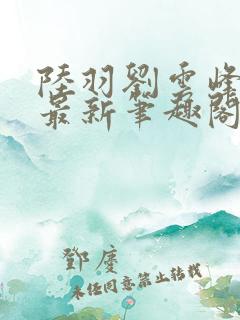 陸羽劉雲峰
最新筆趣閣
鄧慶
未经同意禁止转载